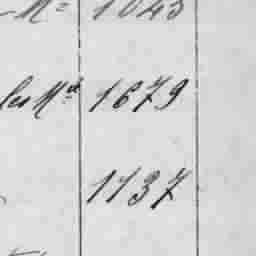 Mᵉ 1043
les Mᵈ 1679
1137